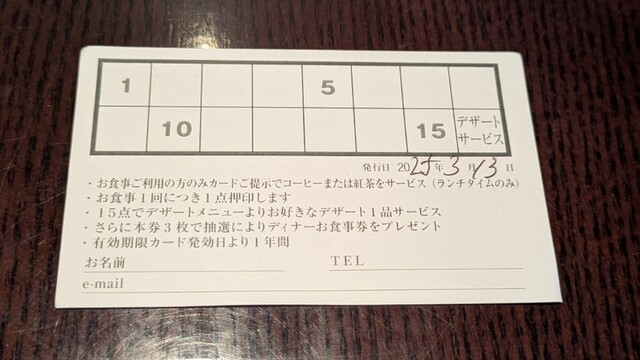 1 5
10 15 デザート
サービス
発行日 2025年3月13日
・お食事ご利用の方のみカードご提示でコーヒーまたは紅茶をサービス（ランチタイムのみ）
・お食事1回につき1点押印します
・15点でデザートメニューよりお好きなデザート1品サービス
・さらに本券3枚で抽選によりディナーお食事券をプレゼント
・有効期限カード発効日より1年間
お名前 TEL
e-mail